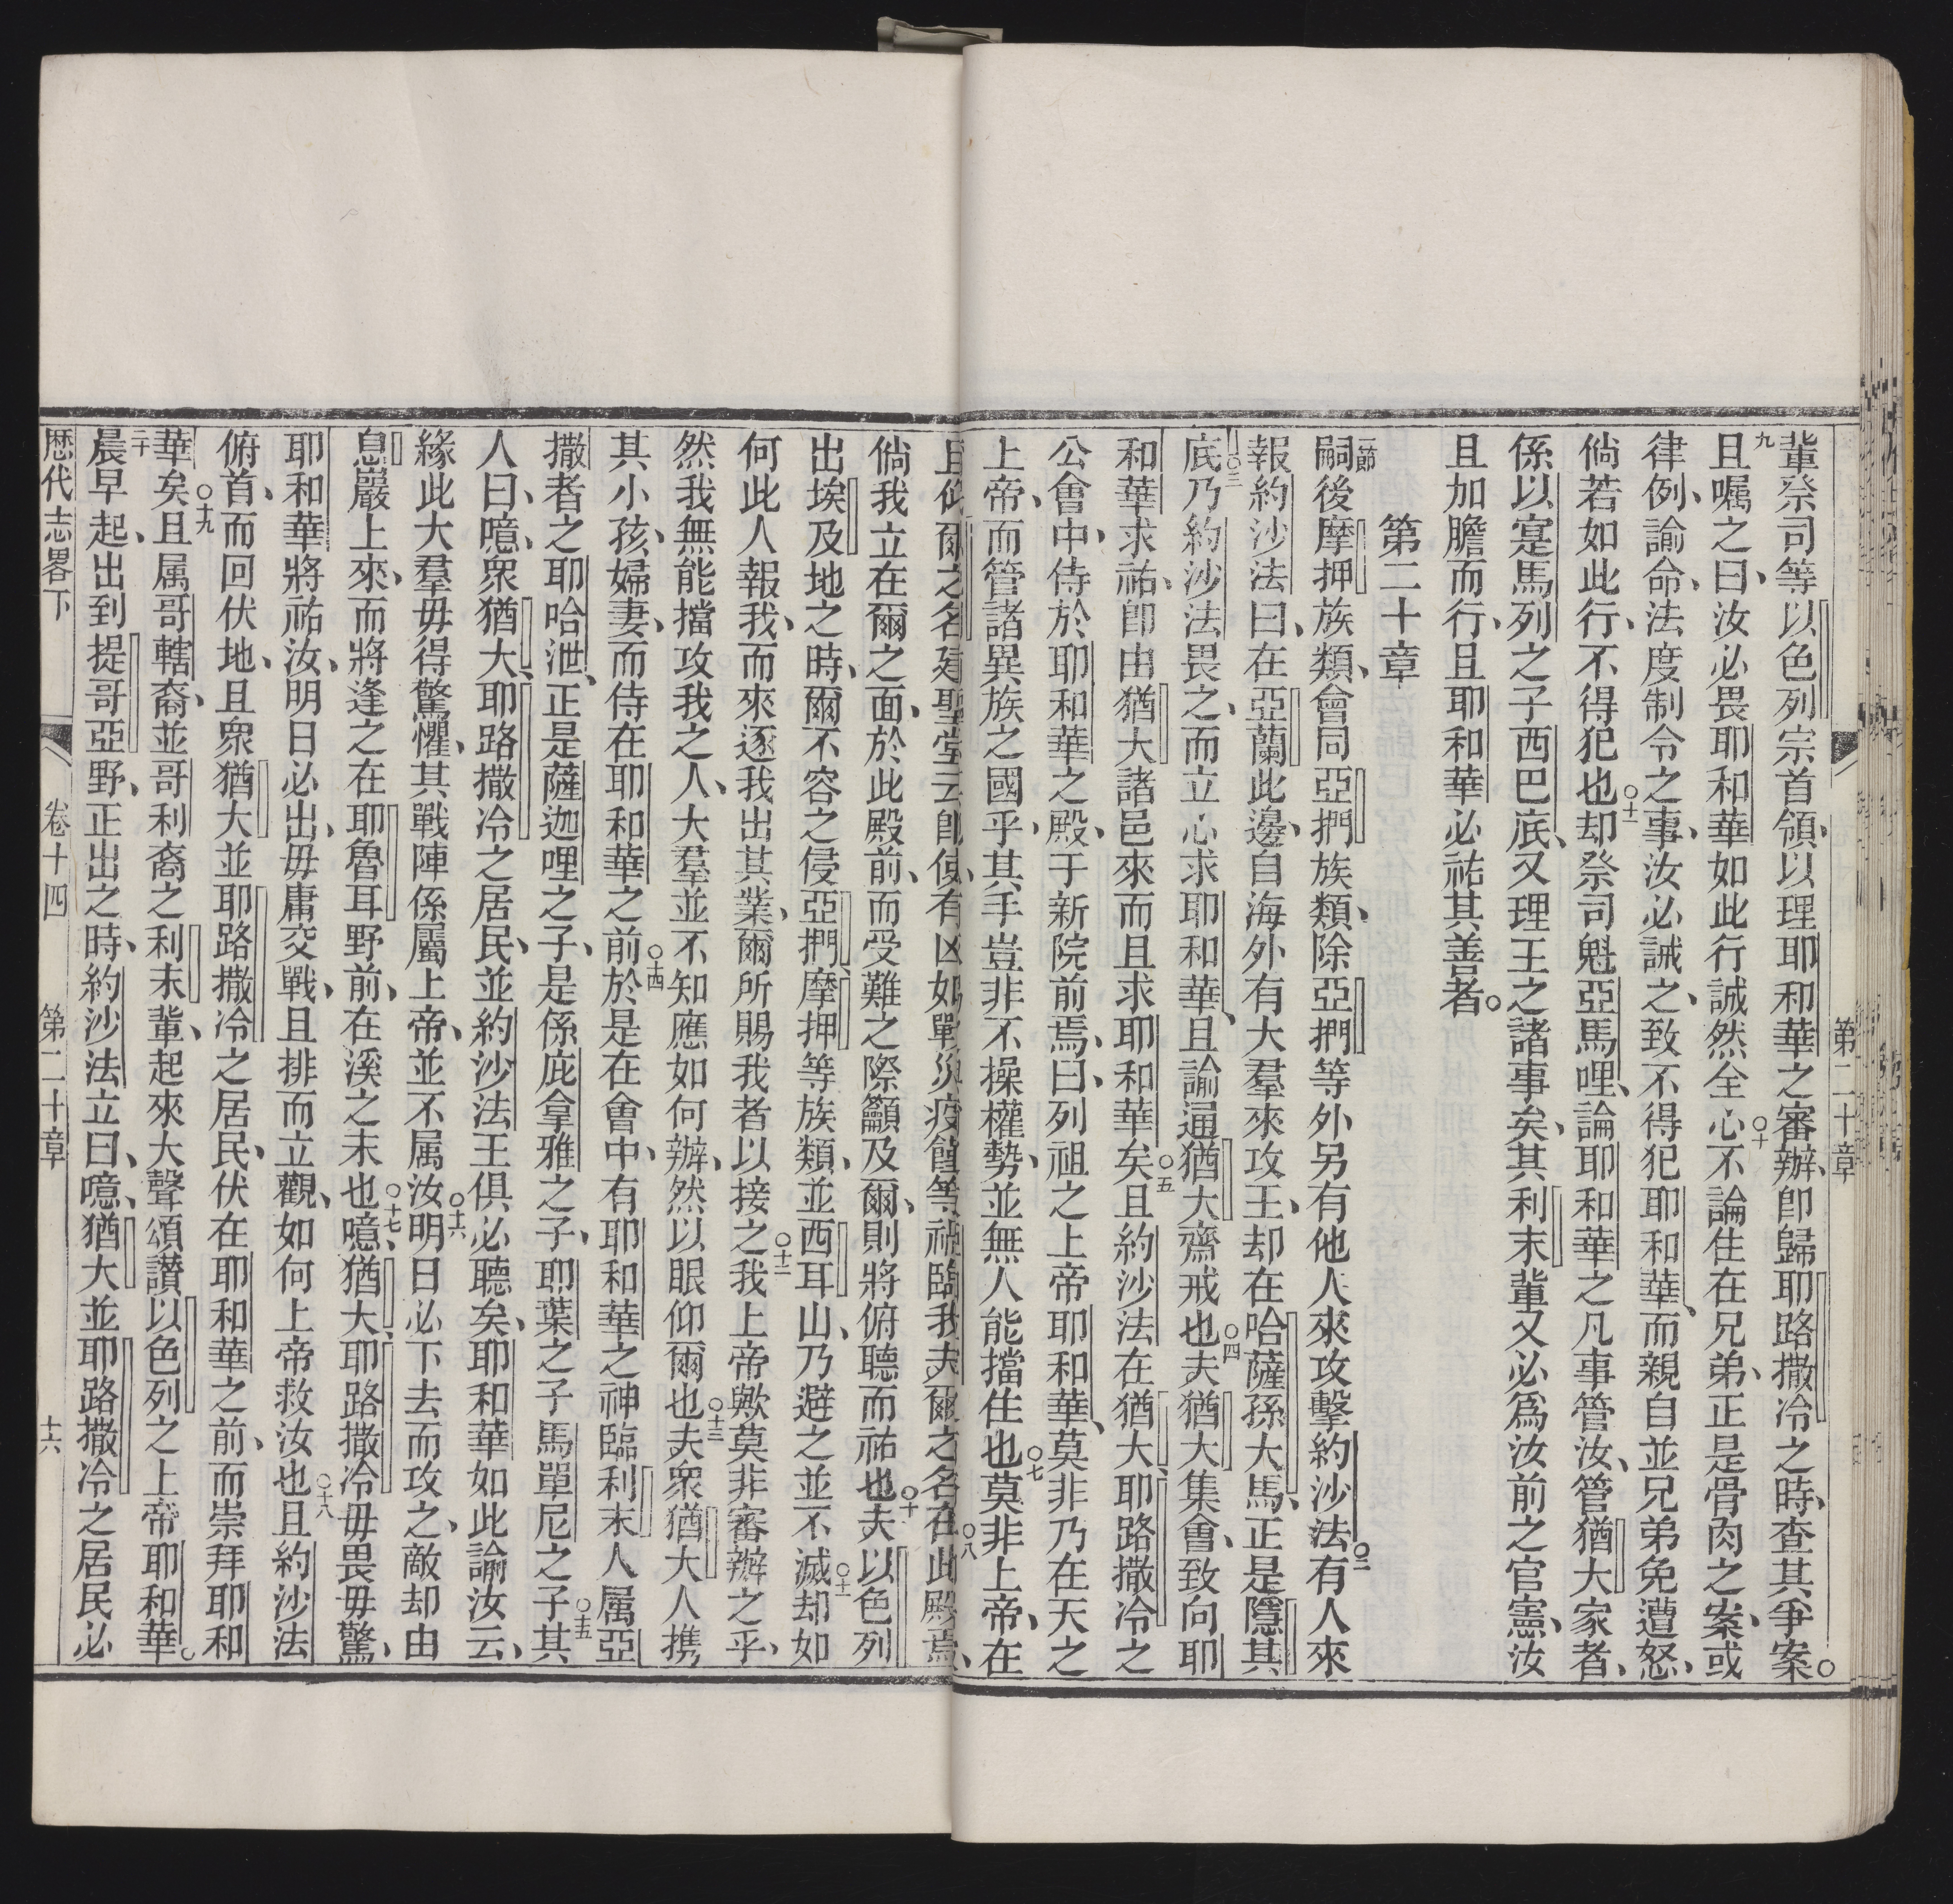 第二十章
輩祭司等以色列宗首領、以理耶和華之審辦、卽歸耶路撒冷之時、查其爭案。
九且嘱之曰、汝必畏耶和華如此行誠然全心○十不論住在兄弟、正是骨肉之案、或
律例、諭命、法度制令之事、汝必誡之、致不得犯耶和華、而親自並兄弟免遭怒、
倘若如此行、不得犯也○十一却祭司魁亞馬哩、論耶和華之凡事管汝、管猶大家者、
係以寔馬列之子西巴底、又理王之諸事矣、其利未輩又必爲汝前之官憲、汝
且加膽而行、且耶和華必祐其善者。
第二十章
一節嗣後摩押族類、會同亞捫族類、除亞捫等外另有他人來攻擊約沙法○二有人來
報約沙法曰、在亞蘭此邊、自海外有大羣來攻王、却在哈薩孫大馬、正是隱其
底○三乃約沙法畏之、而立心求耶和華、且諭通猶大齋戒也○四夫猶大集會、致向耶
和華求祐、卽由猶大諸邑來而且求耶和華矣○五且約沙法在猶大、耶路撒冷之
公會中、侍於耶和華之殿、于新院前焉、曰、列祖之上帝耶和華、莫非乃在天之
上帝、而管諸異族之國乎、其手豈非不操權勢、並無人能擋住也○七莫非上帝、在
且仰爾之名建聖堂云卽使有凶如戰災疫饉等禍臨我夫爾之名在此殿焉、○八
倘我立在爾之面、於此殿前、而受難之際籲及爾、則將俯聽而祐也○十夫以色列
出埃及地之時、爾不容之侵亞捫、摩押等族類、並西耳山、乃避之並不滅○十一却如
何此人報我、而來逐我出其業、爾所賜我者以接之○十二我上帝歟莫非審辦之乎、
然我無能擋攻我之人、大羣並不知應如何辦、然以眼仰爾也○十三夫衆猶大人携
其小孩、婦妻、而侍在耶和華之前○十四於是在會中、有耶和華之神臨利未人属亞
撒者之耶哈泄、正是薩迦哩之子、是係庇拿雅之子、耶葉之子馬單尼之子○十五其
人曰、噫、衆猶大、耶路撒冷之居民、並約沙法王俱必聽矣、耶和華如此諭汝云、
緣此大羣毋得驚懼、其戰陣係屬上帝、並不属汝○十六明日必下去而攻之、敵却由
息巖上來、而將逢之在耶魯耳野前、在溪之末也○十七噫、猶大、耶路撒冷毋畏毋驚、
耶和華將祐汝、明日必出、毋庸交戰、且排而立觀、如何上帝救汝也○十八且約沙法
俯首、而回伏地、且衆猶大並耶路撒冷之居民、伏在耶和華之前、而崇拜耶和
華矣○十九且属哥轄裔、並哥利裔之利未輩、起來大聲頌讃以色列之上帝耶和華。
二十晨早起、出到提哥亞野、正出之時、約沙法立曰、噫、猶大並耶路撒冷之居民必
歷代志畧下 卷十四 第二十章 十六